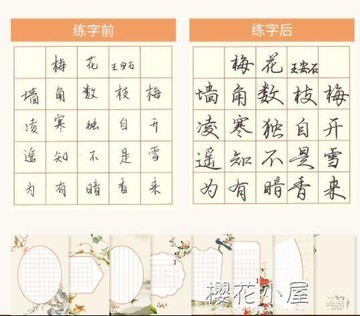 练字前
梅花 王安石
墙角数枝梅
凌寒独自开
遥知不是雪
为有暗香来
练字后
梅花 王安石
墙角数枝梅
凌寒独自开
遥知不是雪
为有暗香来
樱花小屋